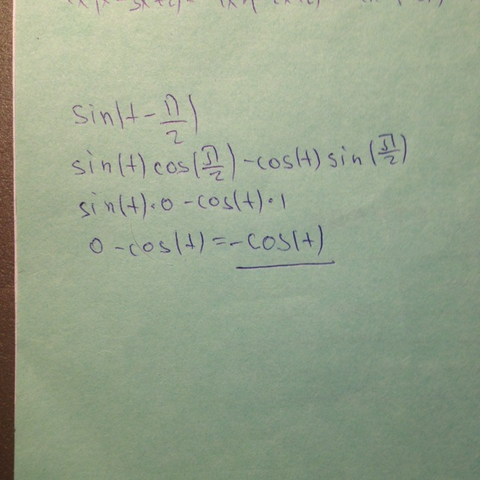 sin(t - π/2)
sin(t) cos(π/2) - cos(t) sin(π/2)
sin(t)·0 - cos(t)·1
0 - cos(t) = -cos(t)